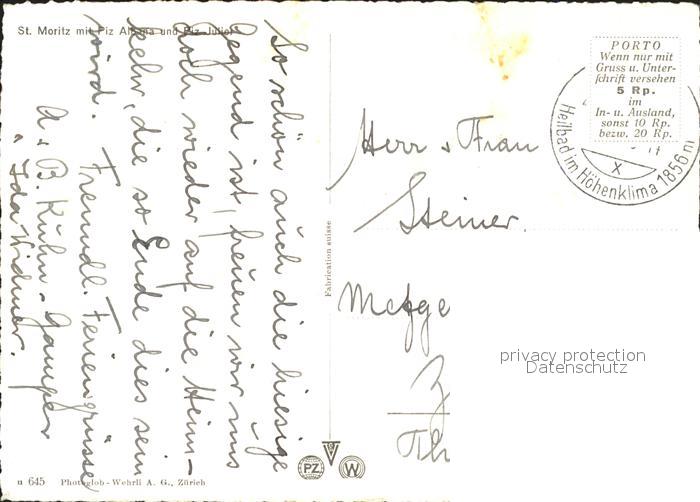 St. Moritz mit Piz Albana und Piz Julier
So schön auch die hiesige
Gegend ist, freuen wir uns
doch wieder auf die Heim-
kehr, die so Ende dies sein
wird. Freundl. Feriengrüsse
A. + B. Kuhn-Gamper
" Ida Widmer.
Fabrication suisse
PORTO
Wenn nur mit
Gruss u. Unter-
schrift versehen
5 Rp.
im
In- u. Ausland,
sonst 10 Rp.
bezw. 20 Rp.
Heilbad im Höhenklima 1856 m
X
Herr + Frau
Steiner
Metzge
Z
Th
privacy protection
Datenschutz
PZ
W
n 645 Photoglob-Wehrli A. G., Zürich